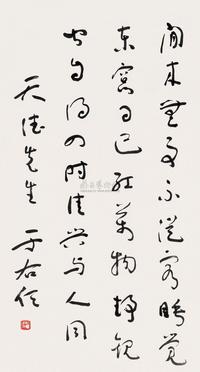 閒来無事不從容睡覺
东窗日已红萬物静觀
皆自得四时佳興与人同
天健先生 于右任